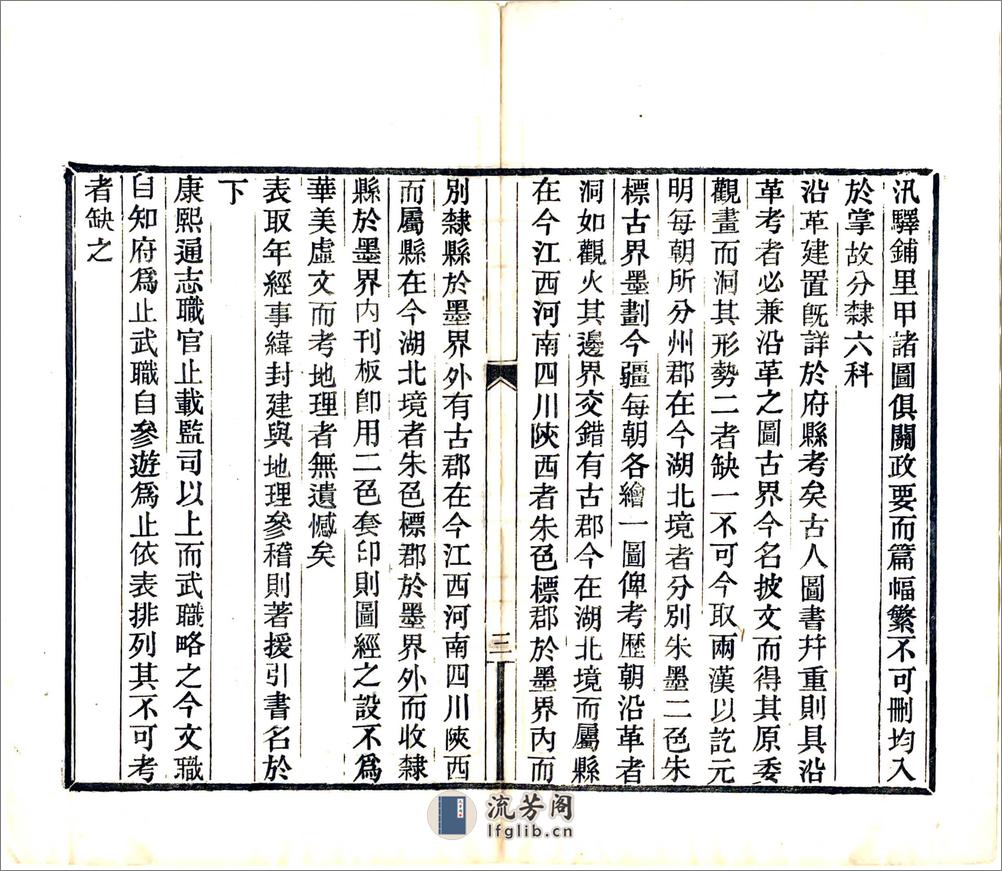 汛驛鋪里甲諸圖俱關政要而篇幅繁不可刪均入
於掌故分隸六科
沿革建置旣詳於府縣考矣古人圖書幷重則具沿
革考者必兼沿革之圖古界今名披文而得其原委
觀畫而洞其形勢二者缺一不可今取兩漢以訖元
明每朝所分州郡在今湖北境者分別朱墨二色朱
標古界墨劃今疆每朝各繪一圖俾考歷朝沿革者
洞如觀火其邊界交錯有古郡今在湖北境而屬縣
在今江西河南四川陝西者朱色標郡於墨界內而
三
別隸縣於墨界外有古郡在今江西河南四川陝西
而屬縣在今湖北境者朱色標郡於墨界外而收隸
縣於墨界內刊板卽用二色套印則圖經之設不爲
華美虛文而考地理者無遺憾矣
表取年經事緯封建與地理參稽則著援引書名於
下
康熙通志職官止載監司以上而武職略之今文職
自知府爲止武職自參遊爲止依表排列其不可考
者缺之
流芳阁
lfglib.cn